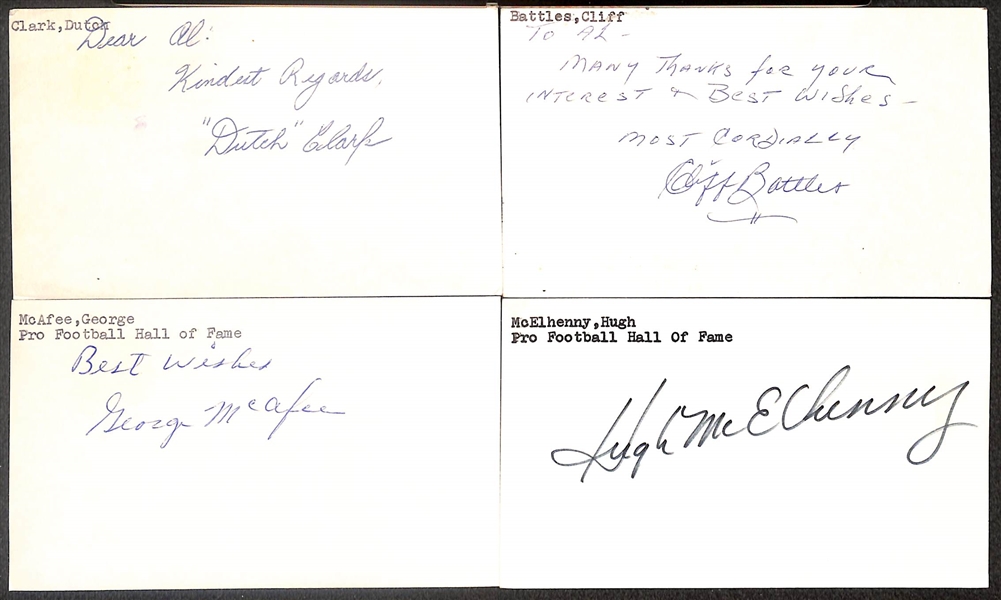 Clark,Dutch
Dear Al:
Kindest Regards,
"Dutch" Clark
Battles,Cliff
To AL -
MANY THANKS for your
INTEREST & BEST WISHES -
MOST CORDIALLY
Cliff Battles
McAfee,George
Pro Football Hall of Fame
Best Wishes
George McAfee
McElhenny,Hugh
Pro Football Hall Of Fame
Hugh McElhenny